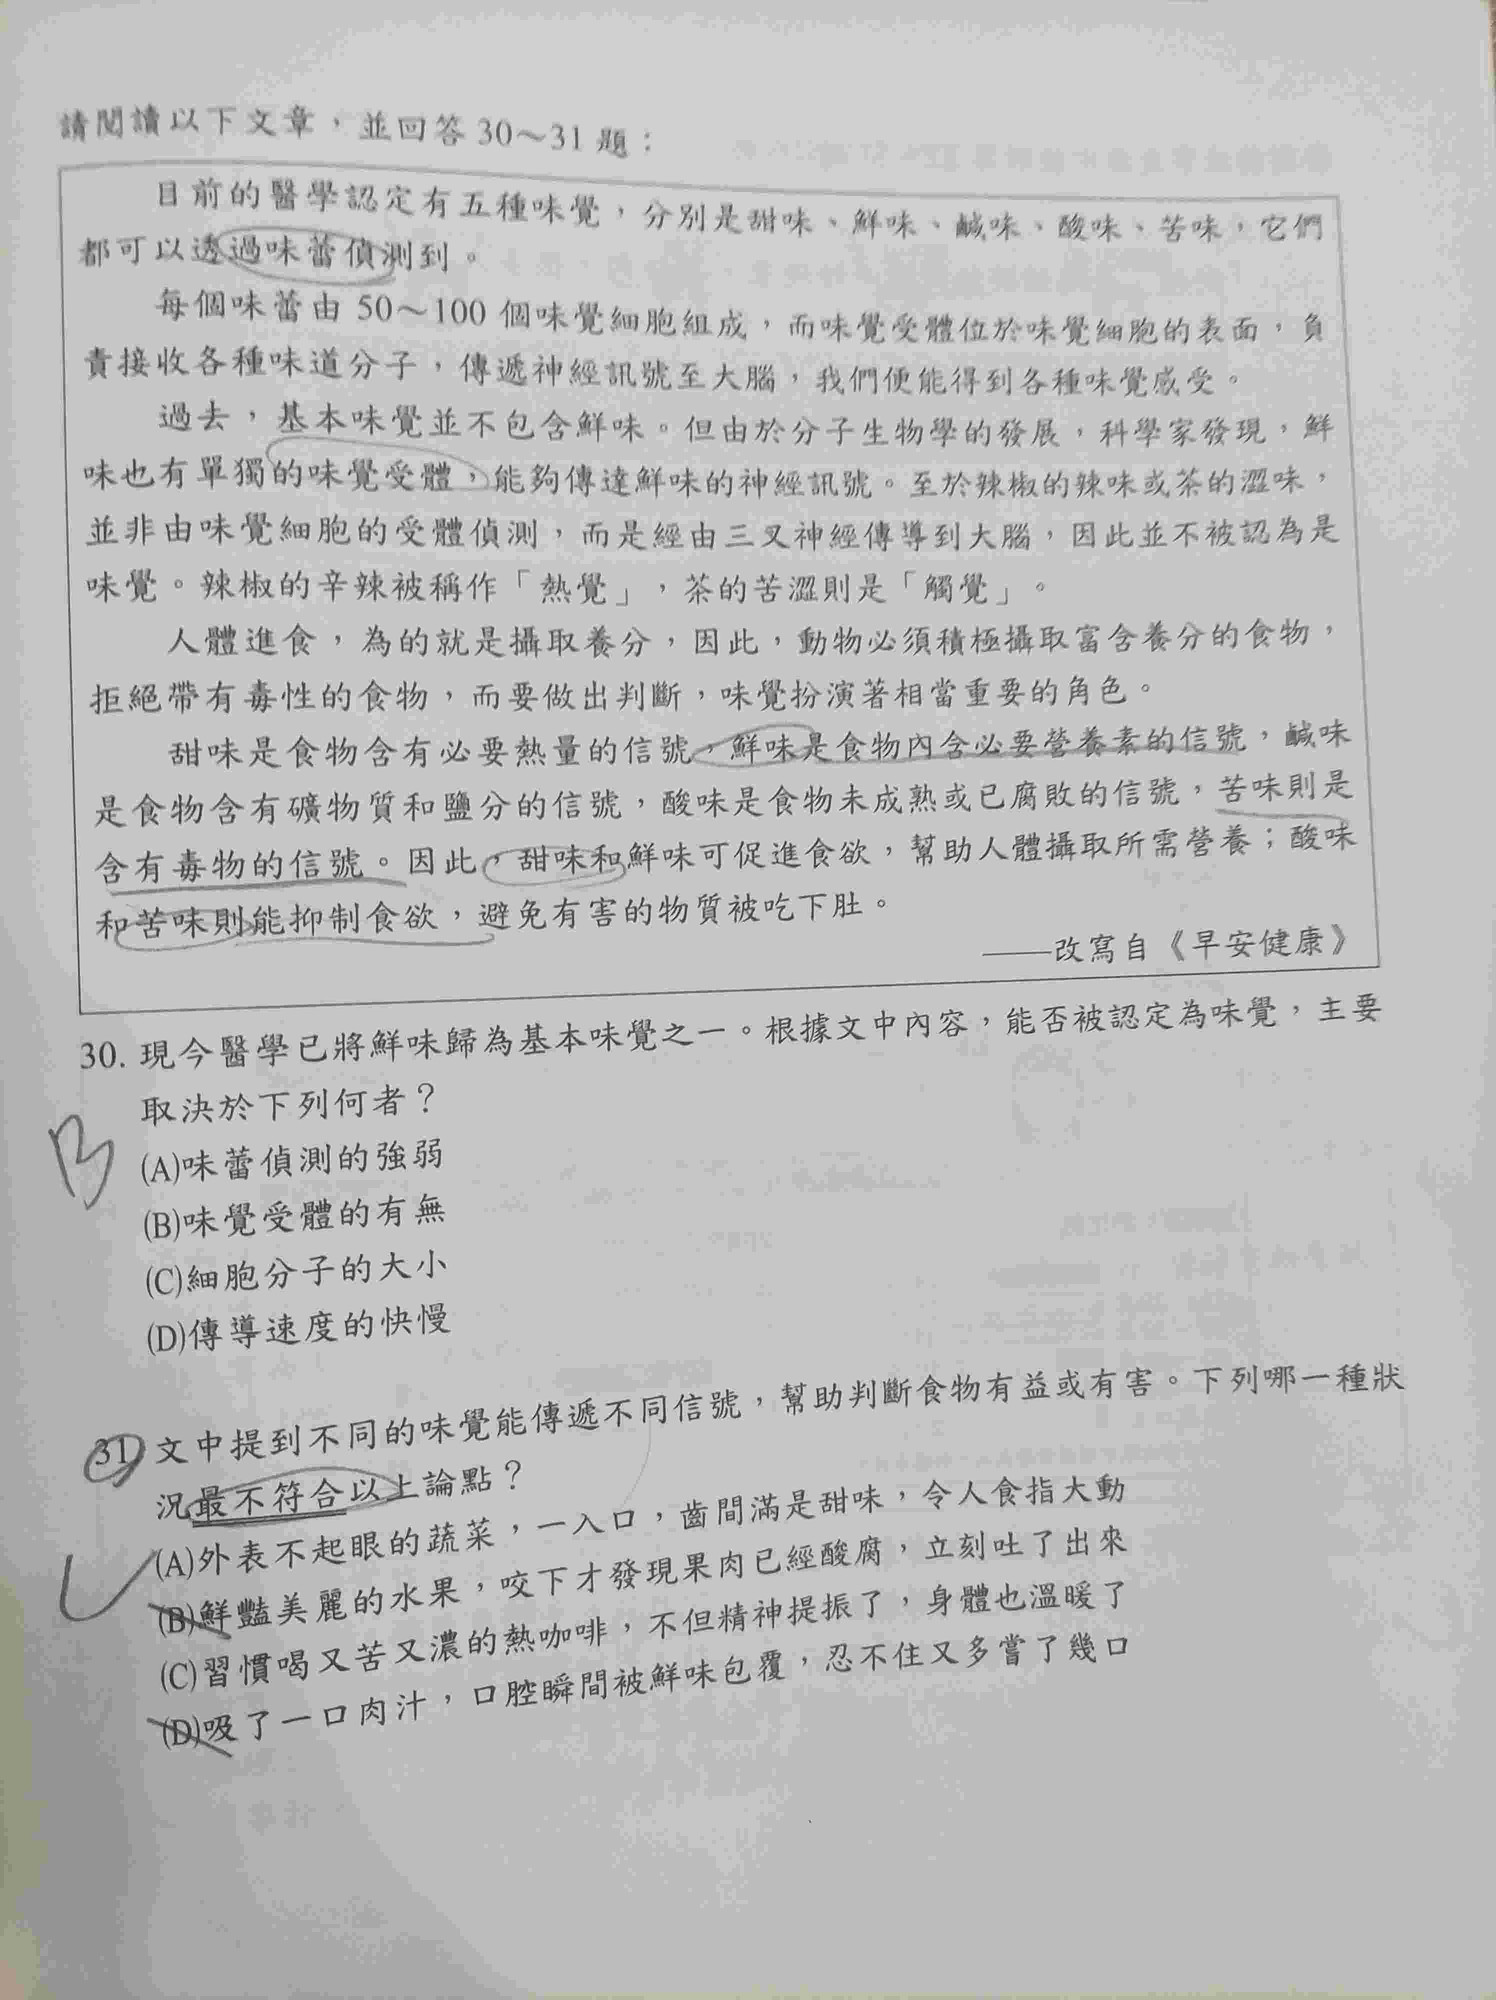 請閱讀以下文章，並回答30～31題：
目前的醫學認定有五種味覺，分別是甜味、鮮味、鹹味、酸味、苦味，它們
都可以透過味蕾偵測到。
每個味蕾由50～100個味覺細胞組成，而味覺受體位於味覺細胞的表面，負
責接收各種味道分子，傳遞神經訊號至大腦，我們便能得到各種味覺感受。
過去，基本味覺並不包含鮮味。但由於分子生物學的發展，科學家發現，鮮
味也有單獨的味覺受體，能夠傳達鮮味的神經訊號。至於辣椒的辣味或茶的澀味，
並非由味覺細胞的受體偵測，而是經由三叉神經傳導到大腦，因此並不被認為是
味覺。辣椒的辛辣被稱作「熱覺」，茶的苦澀則是「觸覺」。
人體進食，為的就是攝取養分，因此，動物必須積極攝取富含養分的食物，
拒絕帶有毒性的食物，而要做出判斷，味覺扮演著相當重要的角色。
甜味是食物含有必要熱量的信號，鮮味是食物內含必要營養素的信號，鹹味
是食物含有礦物質和鹽分的信號，酸味是食物未成熟或已腐敗的信號，苦味則是
含有毒物的信號。因此，甜味和鮮味可促進食欲，幫助人體攝取所需營養；酸味
和苦味則能抑制食欲，避免有害的物質被吃下肚。
——改寫自《早安健康》
30. 現今醫學已將鮮味歸為基本味覺之一。根據文中內容，能否被認定為味覺，主要
取決於下列何者？
B
(A)味蕾偵測的強弱
(B)味覺受體的有無
(C)細胞分子的大小
(D)傳導速度的快慢
31 文中提到不同的味覺能傳遞不同信號，幫助判斷食物有益或有害。下列哪一種狀
況最不符合以上論點？
(A)外表不起眼的蔬菜，一入口，齒間滿是甜味，令人食指大動
(B)鮮豔美麗的水果，咬下才發現果肉已經酸腐，立刻吐了出來
(C)習慣喝又苦又濃的熱咖啡，不但精神提振了，身體也溫暖了
(D)吸了一口肉汁，口腔瞬間被鮮味包覆，忍不住又多嘗了幾口